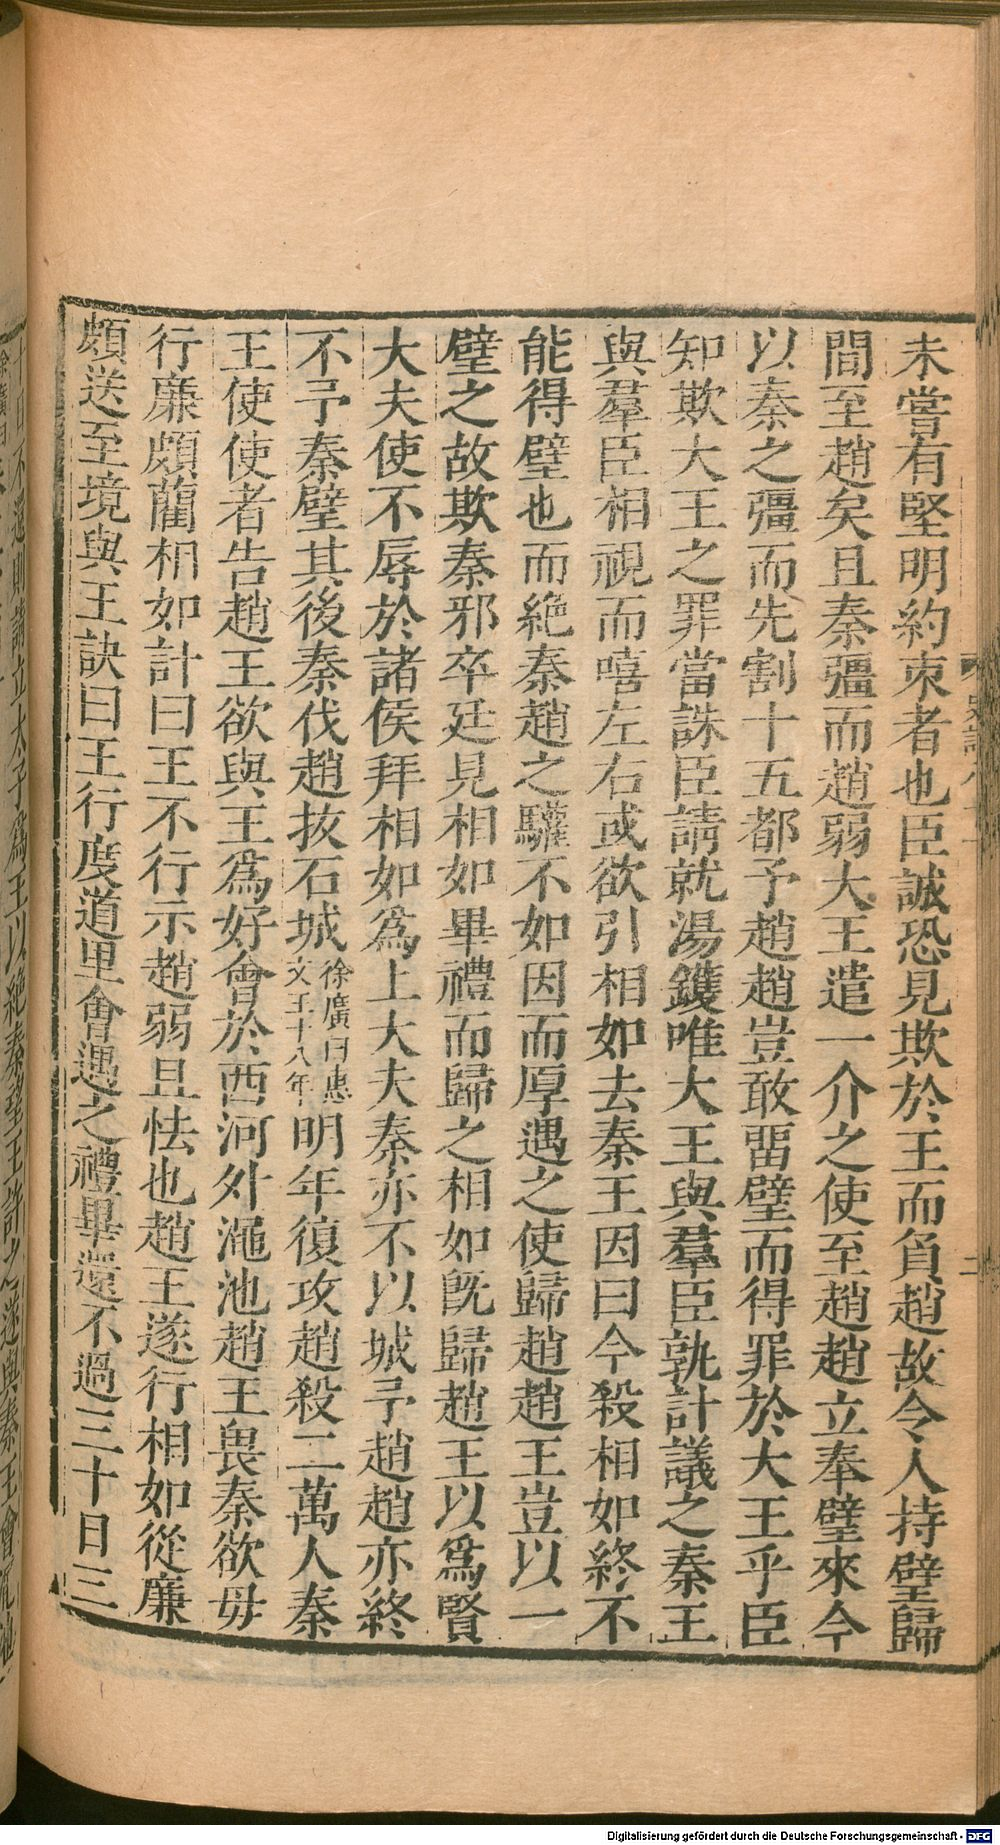 未嘗有堅明約束者也臣誠恐見欺於王而負趙故令人持璧歸
間至趙矣且秦彊而趙弱大王遣一介之使至趙趙立奉璧來今
以秦之彊而先割十五都予趙趙豈敢畱璧而得罪於大王乎臣
知欺大王之罪當誅臣請就湯鑊唯大王與羣臣孰計議之秦王
與羣臣相視而嘻左右或欲引相如去秦王因曰今殺相如終不
能得璧也而絶秦趙之驩不如因而厚遇之使歸趙趙王豈以一
璧之故欺秦邪卒廷見相如畢禮而歸之相如旣歸趙王以爲賢
大夫使不辱於諸侯拜相如爲上大夫秦亦不以城予趙趙亦終
不予秦璧其後秦伐趙拔石城徐廣曰惠文王十八年明年復攻趙殺二萬人秦
王使使者告趙王欲與王爲好會於西河外澠池趙王畏秦欲毋
行廉頗藺相如計曰王不行示趙弱且怯也趙王遂行相如從廉
頗送至境與王訣曰王行度道里會遇之禮畢還不過三十日三
十日不還則請立太子爲王以絶秦望王許之遂與秦王會澠池
Digitalisierung gefördert durch die Deutsche Forschungsgemeinschaft - DFG